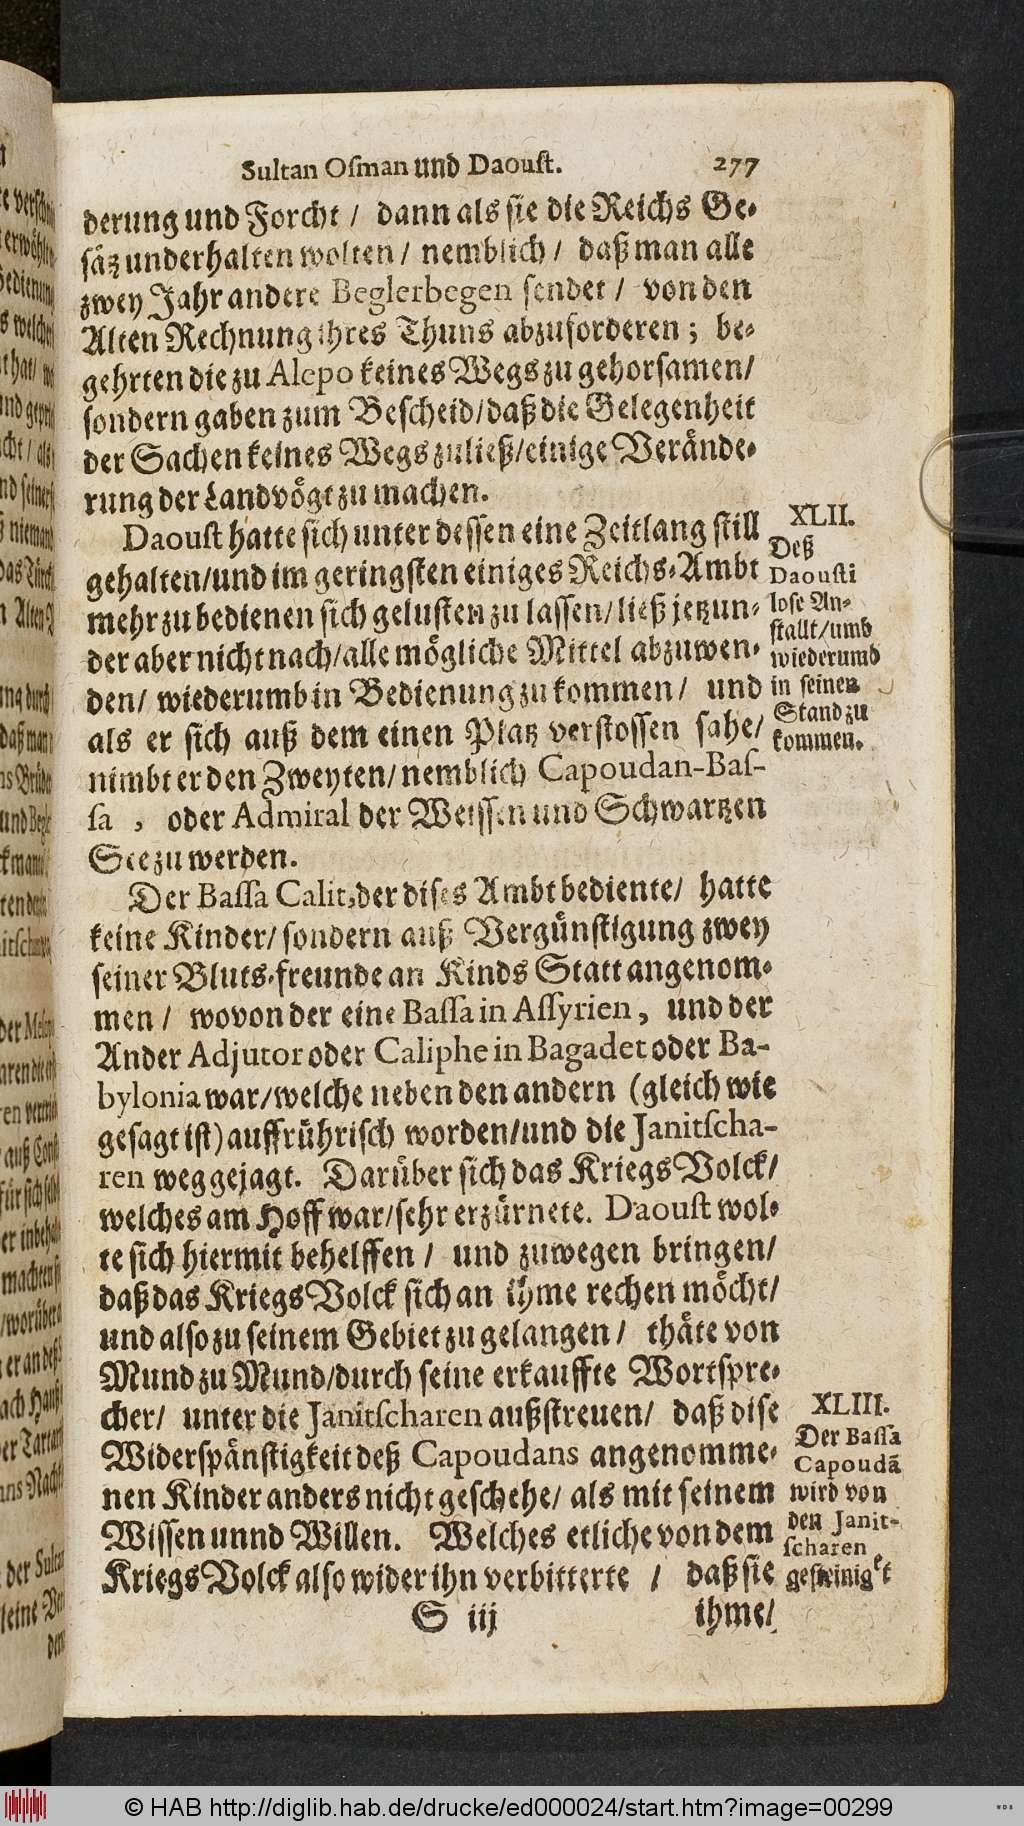 Sultan Osman und Daoust. 277
derung und Forcht / dann als sie die Reichs Ge-
säz underhalten wolten / nemblich / daß man alle
zwey Jahr andere Beglerbegen sendet / von den
Alten Rechnung ihres Thuns abzuforderen; be-
gehrten die zu Alepo keines Wegs zu gehorsamen /
sondern gaben zum Bescheid / daß die Gelegenheit
der Sachen keines Wegs zuließ / einige Verände-
rung der Landvögt zu machen.
Daoust hatte sich unter dessen eine Zeitlang still
gehalten / und im geringsten einiges Reichs-Ambt
mehr zu bedienen sich gelusten zu lassen / ließ jetzun-
der aber nicht nach / alle mögliche Mittel abzuwen-
den / wiederumb in Bedienung zu kommen / und
als er sich auß dem einen Platz verstossen sahe /
nimbt er den Zweyten / nemblich Capoudan-Bas-
sa , oder Admiral der Weissen und Schwartzen
See zu werden.
XLII.
Deß
Daousti
lose An-
stallt / umb
wiederumb
in seinen
Stand zu
kommen.
Der Bassa Calit, der dises Ambt bediente / hatte
keine Kinder / sondern auß Vergünstigung zwey
seiner Bluts-freunde an Kinds Statt angenom-
men / wovon der eine Bassa in Assyrien, und der
Ander Adjutor oder Caliphe in Bagadet oder Ba-
bylonia war / welche neben den andern (gleich wie
gesagt ist) auffrührisch worden / und die Janitscha-
ren weggejagt. Darüber sich das Kriegs Volck /
welches am Hoff war / sehr erzürnete. Daoust wol-
te sich hiermit behelffen / und zuwegen bringen /
daß das Kriegs Volck sich an ihme rechen möcht /
und also zu seinem Gebiet zu gelangen / thäte von
Mund zu Mund / durch seine erkauffte Wortspre-
cher / unter die Janitscharen außstreuen / daß dise
Widerspänstigkeit deß Capoudans angenomme-
nen Kinder anders nicht geschehe / als mit seinem
Wissen unnd Willen. Welches etliche von dem
Kriegs Volck also wider ihn verbitterte / daß sie
XLIII.
Der Bassa
Capoudã
wird von
den Janit-
scharen
gesteiniget
S iij ihme /
© HAB http://diglib.hab.de/drucke/ed000024/start.htm?image=00299